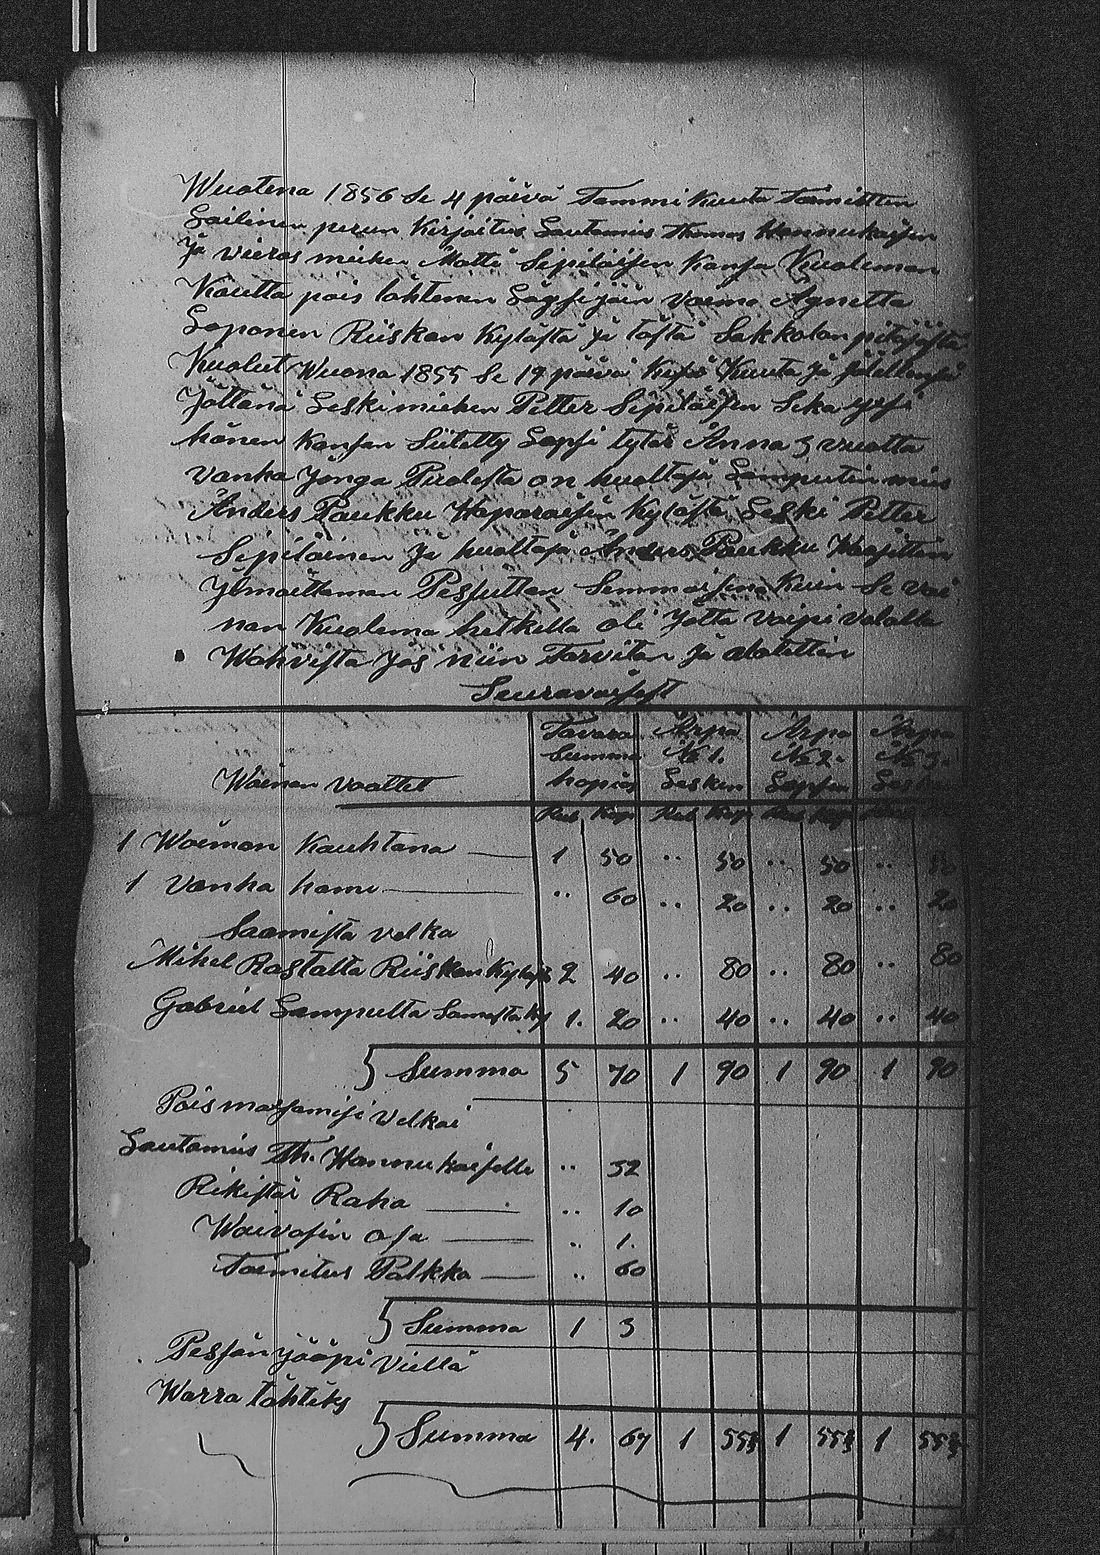 Wuotena 1856 Se 4 päivä Tammi Kuuta Toimittin
Lailinen perun Kirjoitus Lautamies Thomas Hannukaisen
Ja vieras miehen Matti Sipiläisen Kansa Kuoleman
Kautta pois lähtenen Läysijäin vaimo Agnetta
Loponen Riiskan Kylästä Ja tästä Sakkolan pitäjästä
Kuolut Wuona 1855 Se 19 päivä Kesä Kuuta Ja Jälkensä
Jättänä Leskimiehen Petter Sipiläisen Seka yxsi
hänen Kansan Siitetty Lapsi tytär Anna 3 vuotta
vanha Jonga Puolesta on huoltaja Lamputin mies
Anders Paukku Haparaisen Kylästä Leski Petter
Sipiläinen Ja huoltaja Anders Paukku Kasjittin
Jlmoittaman Pesjuttan Semmaisena Kuin Se vai
nan Kuolema hetkella oli Jotta vaipi valalla
Wahvista Jos niin Tarvitan Ja alotettin
Seuravaisest
Tavara Summa hopias
Arpa № 1. Lesken
Arpa № 2. Lapsen
Arpa № 3. Lesken
Waiman vaattet
Rub Kop Rub Kop Rub Kop
1 Waiman Kauhtana — 1 50 .. 50 .. 50 .. 50
1 vanha hame — .. 60 .. 20 .. 20 .. 20
Saamista velka
Mihel Rastatta Riiskan Kylästä 2 40 .. 80 .. 80 .. 80
Gabriel Lampulta Samasta Ky 1. 20 .. 40 .. 40 .. 40
Summa 5 70 1 90 1 90 1 90
Pois maxamisi velkai
Lautamies Th. Hannukaiselle .. 32
Rikistär Raha — .. 10
Waivasin osa — .. 1.
Toimitus Palkka — .. 60
Summa 1 3
Pesjän jääpi viellä
Warra tähteks
Summa 4. 67 1 55⅔ 1 55⅔ 1 55⅔